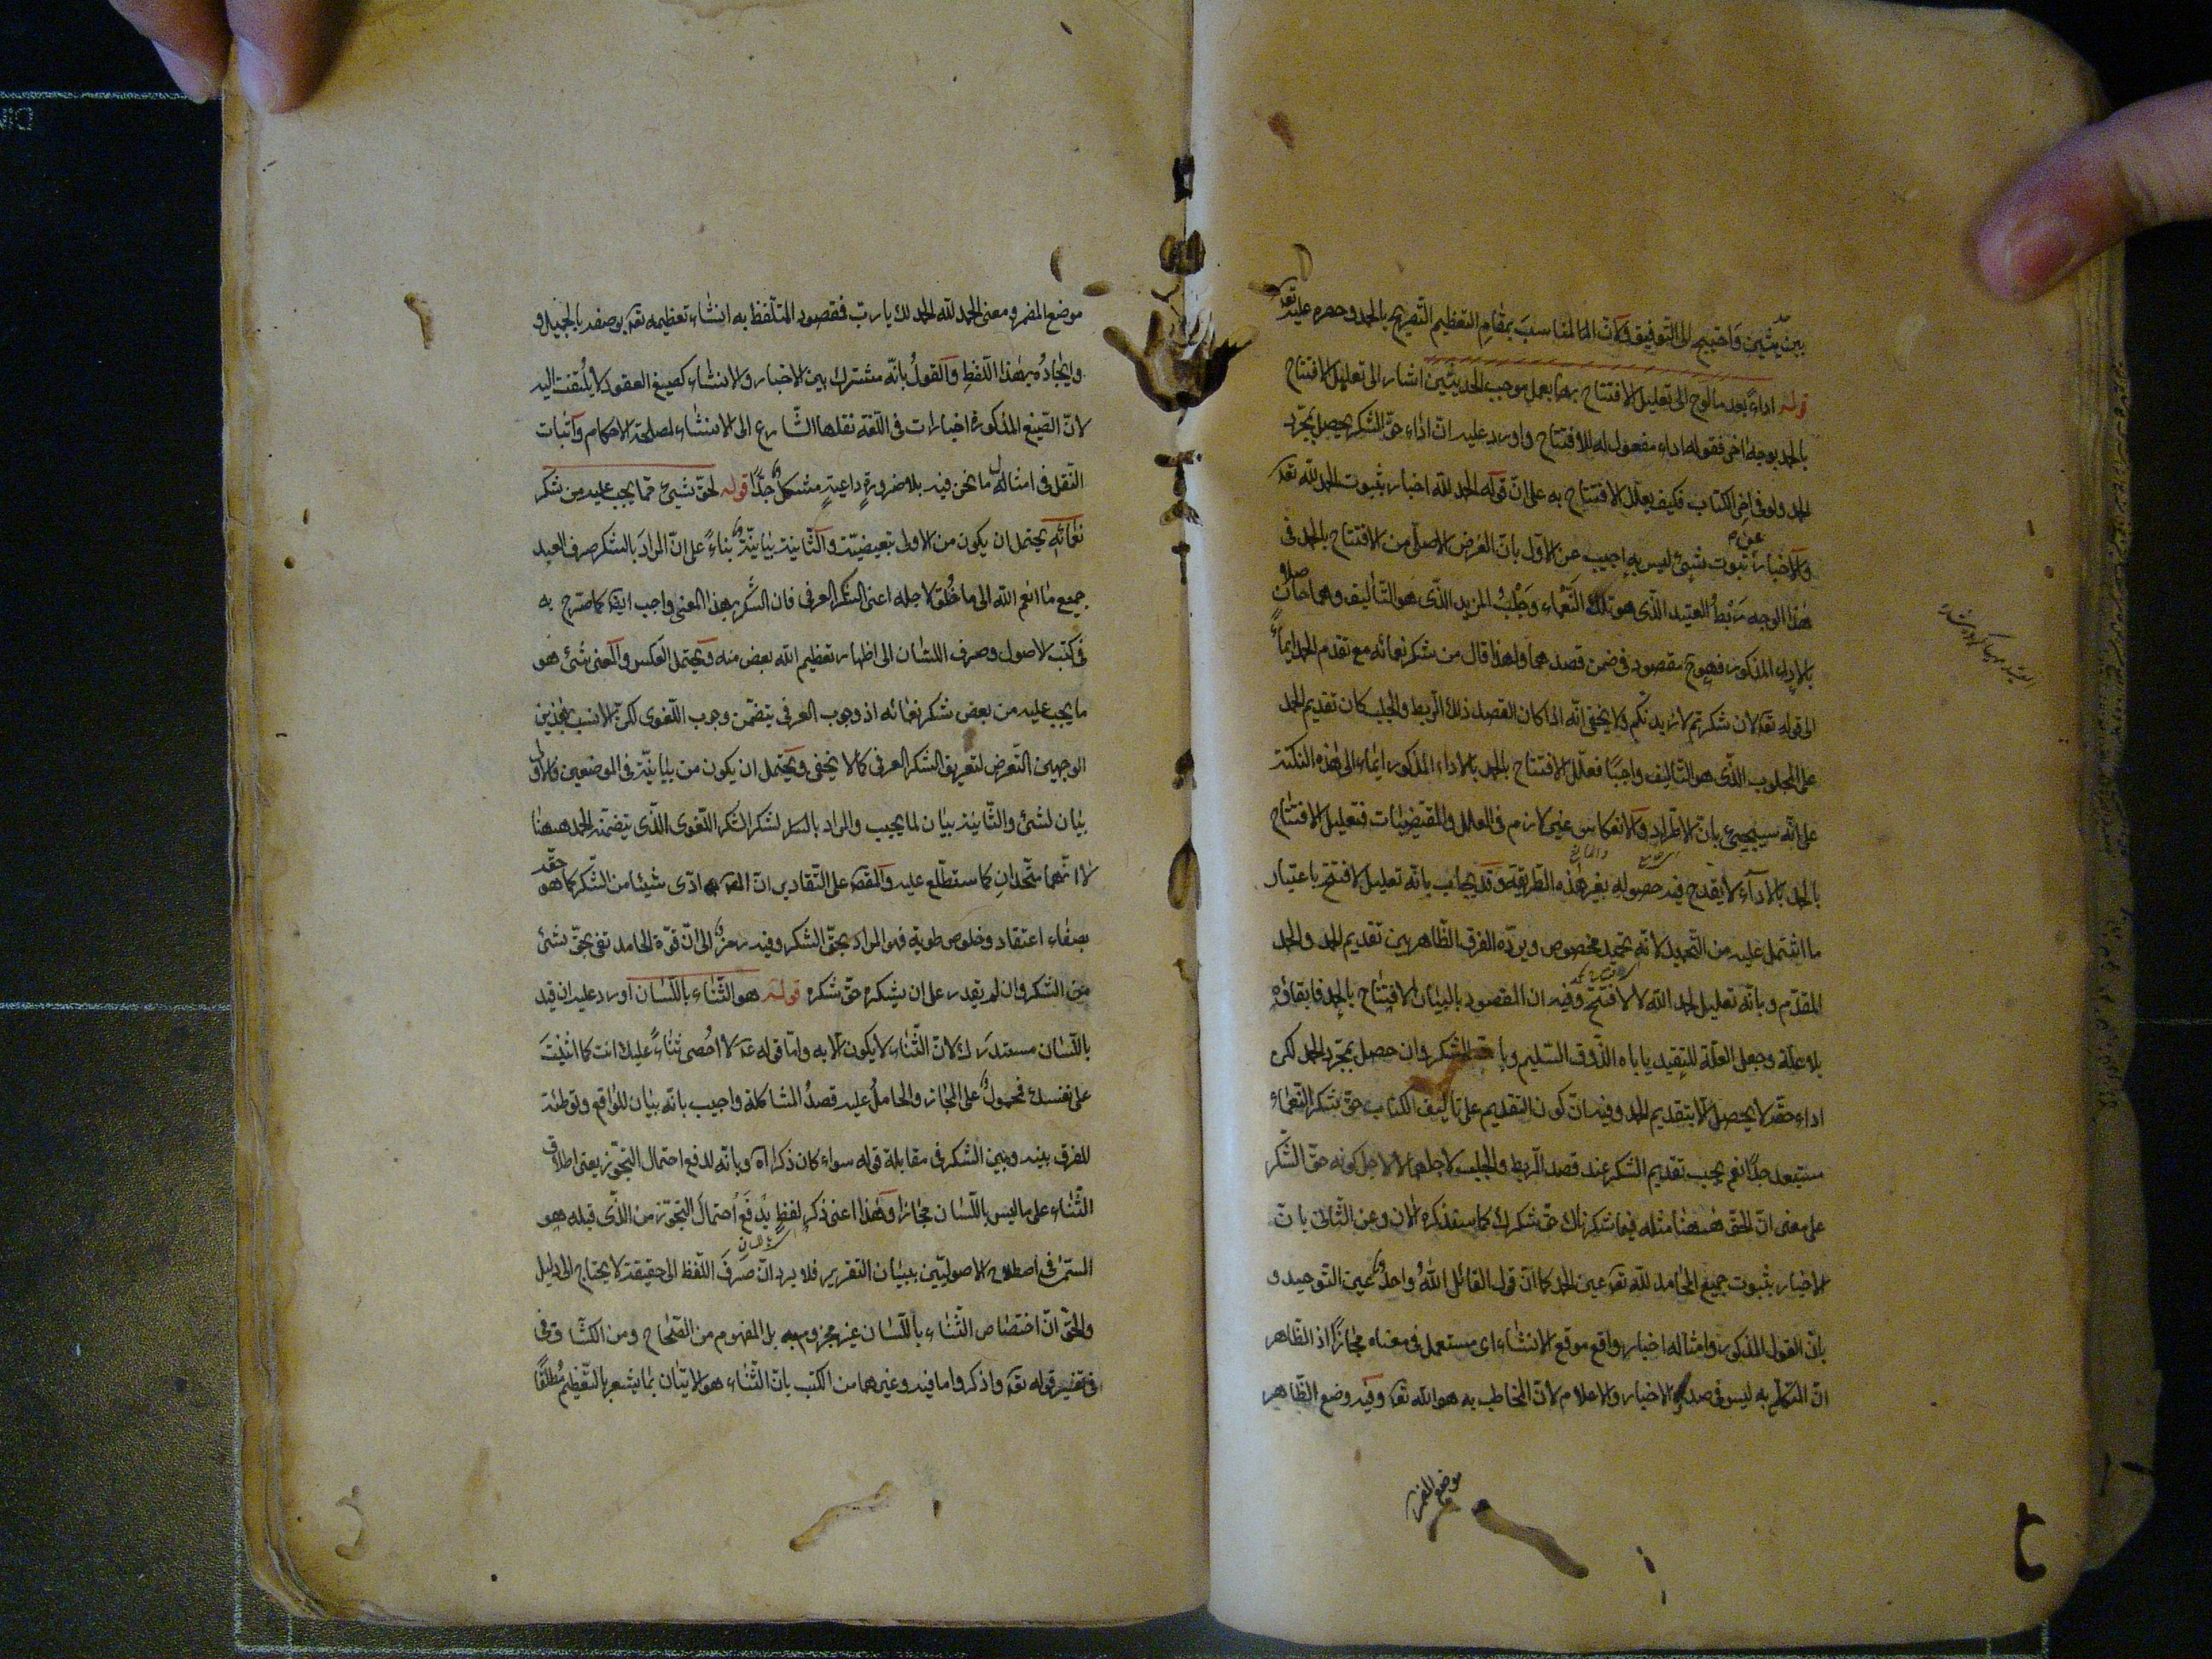 بين يثين واحتيج الى التوفيق وكان المناسب بمقام التعظيم التصريح بالحمد وحصره عليه تعه
قوله اداء بعد ما لوح الى تعليل الافتتاح بهما بعمل موجب الحديثين اشار الى تعليل الافتتاح
بالحمد بوجه اخر فقوله اداء مفعول له للافتتاح واورد عليه ان اداء حق الشكر يحصل بمجرد
الحمد ولو فى اخر الكتاب فكيف يعلل الافتتاح به على ان قوله الحمد لله اخبار بثبوت الحمد لله تعه
والاخبار عن ثبوت شئ ليس به اجيب عن الاول بان الغرض الاصلى من الافتتاح بالحمد فى
هذا الوجه ربط العتيد الذى هو تلك النعماء وجلب المزيد الذى هو التأليف وهما حاصلان
بالاداء المذكور فهو مقصود فى ضمن قصدهما ولهذا قال من شكر نعمائه مع تقدم الحمد ايماء
الى قوله تعه لان شكرتم لازيدنكم ولا يخفى انه اذا كان القصد ذلك الربط والجلب كان تقديم الحمد
على المجلوب الذى هو التاليف واجبا فعلل الافتتاح بالحمد بالاداء المذكور ايماء الى هذه النكتة
على انه سيجئ بان الاطراد والانعكاس غير لازم فى العلل والمقتضيات فتعليل الافتتاح
بالحمد بالاداء لا يقدح فيه حصوله بغير هذه الطريقة وقد يجاب بانه تعليل لافتتح باعتبار
ما اشتمل عليه من التحميد لانه تحميد مخصوص ويرده الفرق الظاهر بين تقديم الحمد والحمد
المقدم وبانه تعليل لحمد الله لا لافتتح وفيه ان المقصود بالبيان الافتتاح بالحمد فابقاؤه
بلا علة وجعل العلة للتقييد ياباه الذوق السليم وبان الشكر وان حصل بمجرد الحمد لكن
اداء حقه لا يحصل الا بتقديم الحمد وفيه ان كون التقديم على تأليف الكتاب حق شكر النعماء
مستبعد جدا نعم يجب تقديم الشكر عند قصد الربط والجلب لاجلهما لا لاجل كونه حق الشكر
على معنى ان الحق ههنا مثله فيما شكرناك حق شكرك كما سنذكره الان وعن الثانى بان
الاخبار بثبوت جميع المحامد لله تعه عين الحمد كما ان قول القائل الله واحد عين التوحيد و
بان القول المذكور وامثاله اخبار واقع موقع الانشاء اى مستعمل فى معناه مجازا اذ الظاهر
ان المتكلم به ليس فى صدد الاخبار والاعلام لان المخاطب به هو الله تعه وفيه وضع الظاهر
موضع المضمر
موضع المضمر ومعنى الحمد لله الحمد لك يا رب فقصود المتلفظ به انشاء تعظيمه تعه بوصفه بالجميل و
وايجاده بهذا اللفظ والقول بانه مشترك بين الاخبار والانشاء كصيغ العقود لا يلتفت اليه
لان الصيغ المذكورة اخبارات فى اللغة نقلها الشارع الى الانشاء لمصلحة الاحكام واثبات
النقل فى امثال ما نحن فيه بلا ضرورة داعية مشكل جدا قوله لحق شئ مما يجب عليه من شكر
نعمائه يحتمل ان يكون من الاولى تبعيضية والثانية بيانية بناء على ان المراد بالشكر صرف العبد
جميع ما انعم الله الى ما خلق لاجله اعنى الشكر العرفى فان الشكر بهذا المعنى واجب ايضا كما صرح به
فى كتب الاصول وصرف اللسان الى اظهار تعظيم الله بعض منه ويحتمل العكس والمعنى شئ هو
ما يجب عليه من بعض شكر نعمائه اذ وجوب العرفى يتضمن وجوب اللغوى لكن الانسب بهذين
الوجهين التعرض لتعريف الشكر العرفى كما لا يخفى ويحتمل ان يكون من بيانية فى الموضعين والاولى
بيان لشئ والثانية بيان لما يجب والمراد بالشكر الشكر اللغوى الذى يتضمنه الحمد ههنا
لا انهما متحدان كما ستطلع عليه والمقصه على التقادير ان المصه ادى شيئا من الشكر كما هو حقه
بصفاء اعتقاد وخلوص طوية فهو المراد بحق الشكر وفيه رمز الى ان قوة الحامد تفى بحق شئ
من الشكر وان لم يقدر على ان يشكره حق شكره قوله هو الثناء باللسان اورد عليه ان قيد
باللسان مستدرك لان الثناء لا يكون الا به واما قوله عه لا احصى ثناء عليك انت كما اثنيت
على نفسك فمحمول على المجاز والحامل عليه قصد المشاكلة واجيب بانه بيان للواقع وتوطئة
للفرق بينه وبين الشكر فى مقابلة قوله سواء كان ذكرا اه وبانه لدفع احتمال التجوز يعنى اطلاق
الثناء على ما ليس باللسان مجازا وهذا اعنى ذكر لفظ يدفع احتمال التجوز من الذى قبله هو
المسمى فى اصطلاح الاصوليين ببيان التقرير فلا يرد ان صرف اللفظ الى حقيقته لا يحتاج الى دليل
والحق ان اختصاص الثناء باللسان غير مجزوم به بل المفهوم من الصحاح ومن الكشاف فى
فى تفسير قوله تعه واذكروا ما فيه وغيرهما من الكتب بان الثناء هو الاتيان بما يشعر بالتعظيم مطلقا